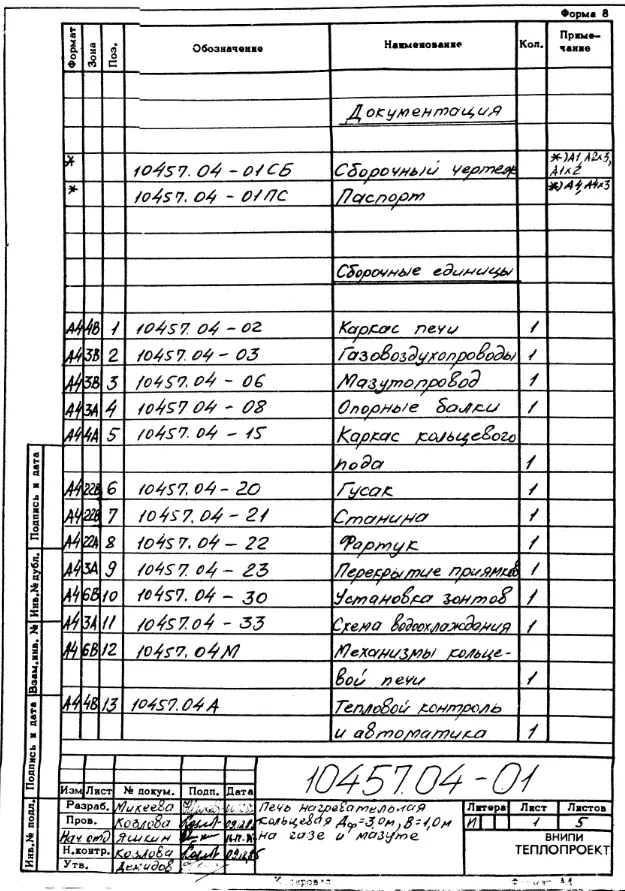 Форма 8
Формат Зона Поз. Обозначение Наименование Кол. Приме-
чание
Документация
* 10457.04-01СБ Сборочный чертеж *)А1, А2х3,
А1х2
* 10457.04-01ПС Паспорт *) А4, А4х3
Сборочные единицы
А4 4В 1 10457.04-02 Каркас печи 1
А4 3В 2 10457.04-03 Газовоздухопроводы 1
А4 3В 3 10457.04-06 Мазутопровод 1
А4 3А 4 10457.04-08 Опорные балки 1
А4 4А 5 10457.04-15 Каркас кольцевого
пода 1
А4 22В 6 10457.04-20 Гусак 1
А4 22В 7 10457.04-21 Станина 1
А4 22А 8 10457.04-22 Фартук 1
А4 3А 9 10457.04-23 Перекрытие приямков 1
А4 6В 10 10457.04-30 Установка зонтов 1
А4 3А 11 10457.04-33 Схема водоохлаждения 1
А4 6В 12 10457.04М Механизмы кольце-
вой печи 1
А4 4В 13 10457.04А Тепловой контроль
и автоматика 1
Инв.№ подл. Подпись и дата Взам.инв. № Инв.№ дубл. Подпись и дата
10457.04-01
Изм Лист № докум. Подп. Дата
Разраб. Микеева
Пров. Козлова
Нач отд Яшкин
Н.контр. Козлова
Утв. Демидов
Печь нагревательная
кольцевая Дср=3,0м, В=1,0м
на газе и мазуте
Литера Лист Листов
И 1 5
ВНИПИ
ТЕПЛОПРОЕКТ
Копировал Формат А4